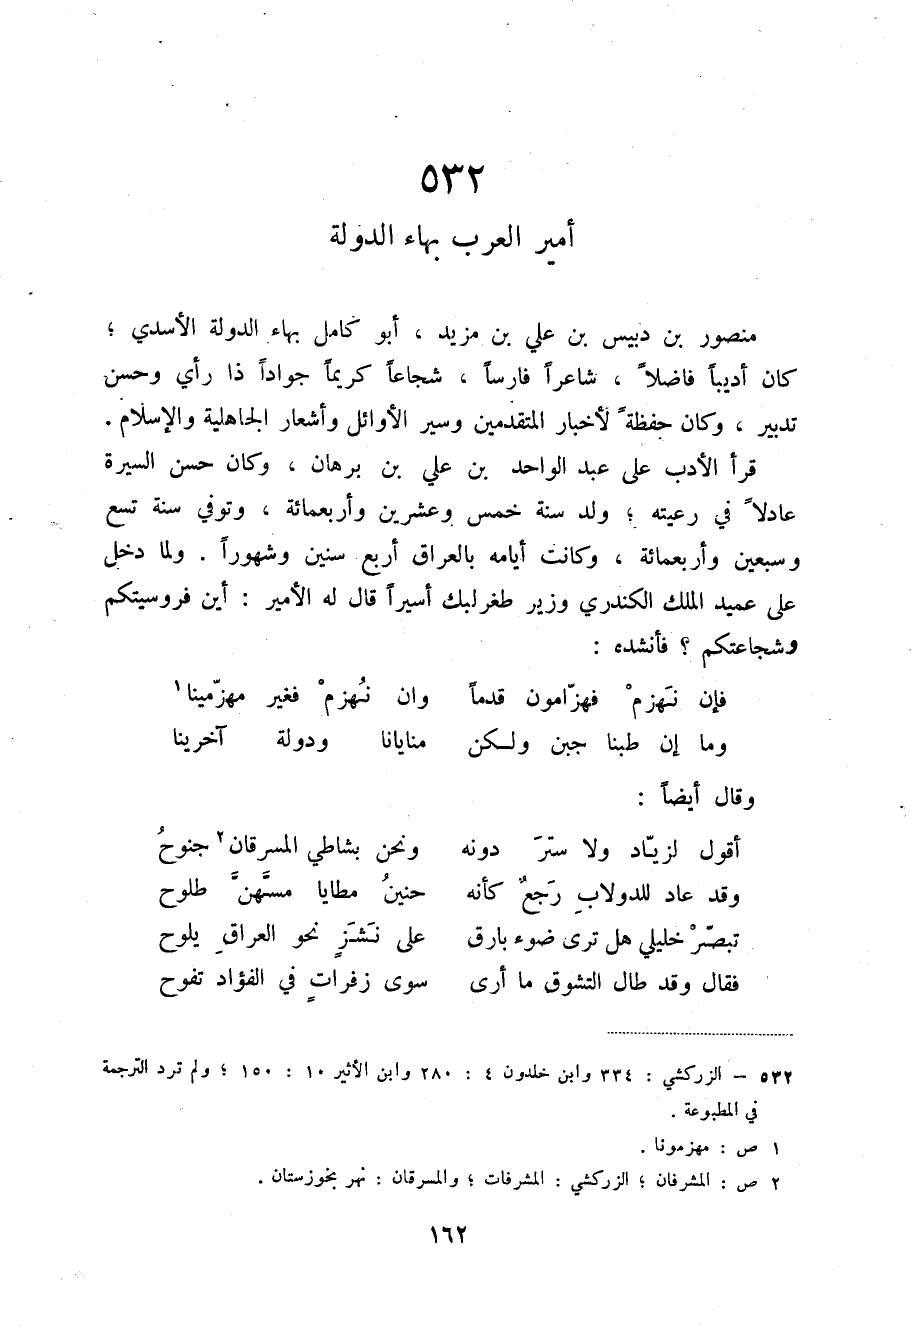 ٥٣٢
أمير العرب بهاء الدولة
منصور بن دبيس بن علي بن مزيد ، أبو كامل بهاء الدولة الأسدي ؛
كان أديباً فاضلاً ، شاعراً فارساً ، شجاعاً كريماً جواداً ذا رأي وحسن
تدبير ، وكان حفظةً لأخبار المتقدمين وسير الأوائل وأشعار الجاهلية والإسلام .
قرأ الأدب على عبد الواحد بن علي بن برهان ، وكان حسن السيرة
عادلاً في رعيته ؛ ولد سنة خمس وعشرين وأربعمائة ، وتوفي سنة تسع
وسبعين وأربعمائة ، وكانت أيامه بالعراق أربع سنين وشهوراً . ولما دخل
على عميد الملك الكندري وزير طغرلبك أسيراً قال له الأمير : أين فروسيتكم
وشجاعتكم ؟ فأنشده :
فإن نَهزمْ فهزّامون قدماً وان نُهزمْ فغير مهزّمينا١
وما إن طبنا جبن ولكن منايانا ودولة آخرينا
وقال أيضاً :
أقول لزيّاد ولا سترَ دونه ونحن بشاطي المسرقان٢ جنوحُ
وقد عاد للدولابِ رَجعٌ كأنه حنينُ مطايا مسَّهنَّ طلوح
تبصّرْ خليلي هل ترى ضوء بارق على نَشَزٍ نحو العراقِ يلوح
فقال وقد طال التشوق ما أرى سوى زفراتٍ في الفؤاد تفوح
٥٣٢ – الزركشي : ٣٣٤ وابن خلدون ٤ : ٢٨٠ وابن الأثير ١٠ : ١٥٠ ؛ ولم ترد الترجمة
في المطبوعة .
١ ص : مهزمونا .
٢ ص : المشرفان ؛ الزركشي : المشرفات ؛ والمسرقان : نهر بخوزستان .
١٦٢